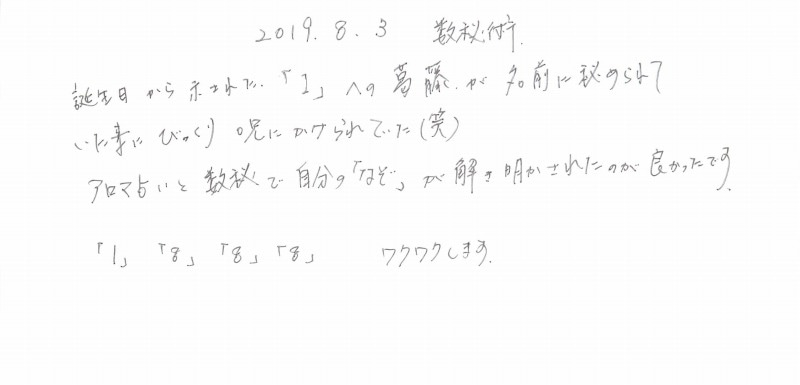 2019.8.3 数秘術.
誕生日から示された「1」への葛藤が名前に秘められて
いた事にびっくり 呪にかけられていた(笑)
アロマ占いと数秘で自分の「なぞ」が解き明かされたのが良かったです.
「1」「8」「8」「8」 ワクワクします.